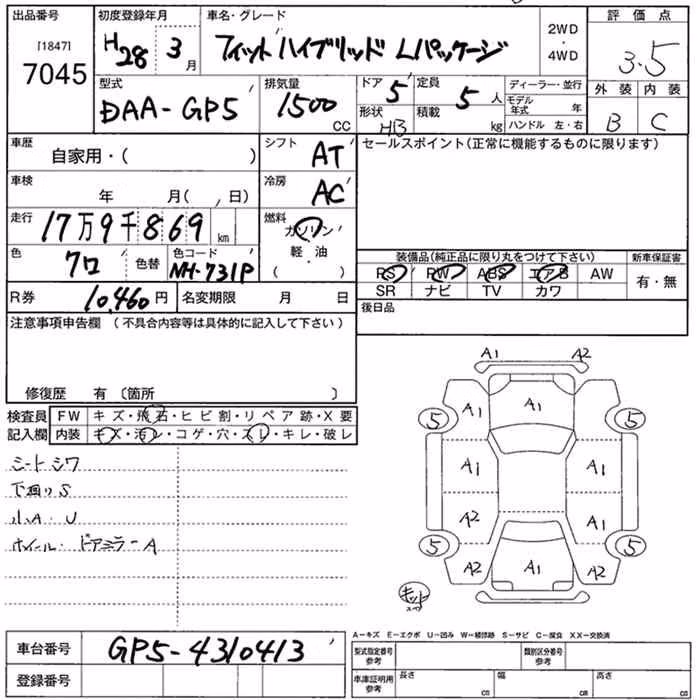 出品番号 初度登録年月 車名・グレード 評価点
[1847] 7045 H28 3月 フィットハイブリッド Lパッケージ 2WD・4WD 3.5
型式 排気量 ドア 定員 ディーラー・並行 外装 内装
DAA-GP5 1500 CC 5 5人 モデル年式 年
形状 HB 積載 kg ハンドル 左・右 B C
車歴 自家用・( ) シフト AT セールスポイント(正常に機能するものに限ります)
車検 年 月( 、日) 冷房 AC
走行 17万9千869km 燃料 ガソリン・軽・油( )
色 クロ 色替 色コード NH-731P
装備品(純正品に限り丸をつけて下さい) 新車保証書
PS PW ABS エアB AW 有・無
SR ナビ TV カワ
R券 10,460円 名変期限 月 日 後日品
注意事項申告欄 (不具合内容等は具体的に記入して下さい)
修復歴 有 〔箇所 〕
検査員 FW キズ・飛石・ヒビ割・リペア跡・X要
記入欄 内装 キズ・汚レ・コゲ・穴・スレ・キレ・破レ
シートシワ
下廻りS
小A・U
ホイール・ドアミラーA
A1 A2
A1 A1 A1
5 5
A1 A1
A2 A1
5 5
A2 A1 A2
キット
A=キズ E=エクボ U=凹み W=補修跡 S=サビ C=腐食 XX=交換済
車台番号 GP5-4310413
登録番号
型式指定番号 参考 類別区分番号 参考
車庫証明用 参考 長さ cm 幅 cm 高さ cm